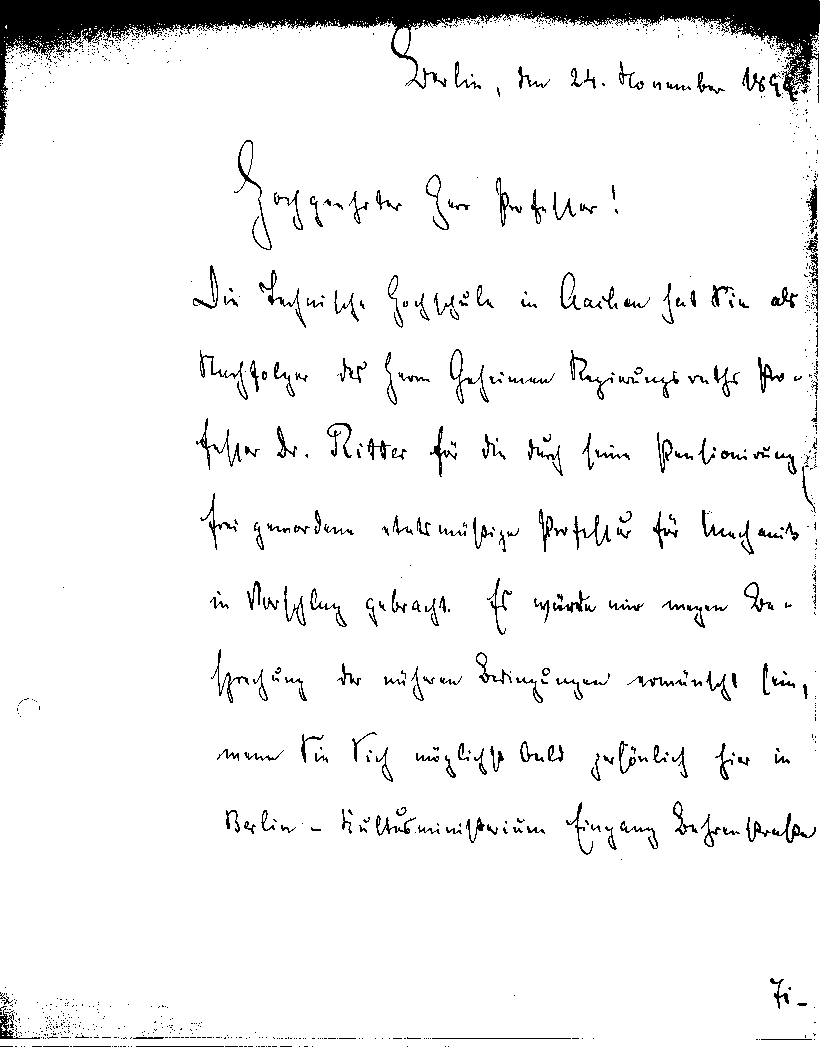 Berlin, den 24. November 1899.
Hochgeehrter Herr Professor!
Die Technische Hochschule in Aachen hat Sie als
Nachfolger des Herrn Geheimen Regierungsraths Pro-
fessor Dr. Ritter für die durch seine Pensionirung
frei gewordene etatsmäßige Professur für Mechanik
in Vorschlag gebracht. Es würde mir wegen Be-
sprechung der näheren Bedingungen erwünscht sein,
wenn Sie Sich möglichst bald persönlich hier in
Berlin - Kultusministerium Eingang Behrenstraße
Zi-